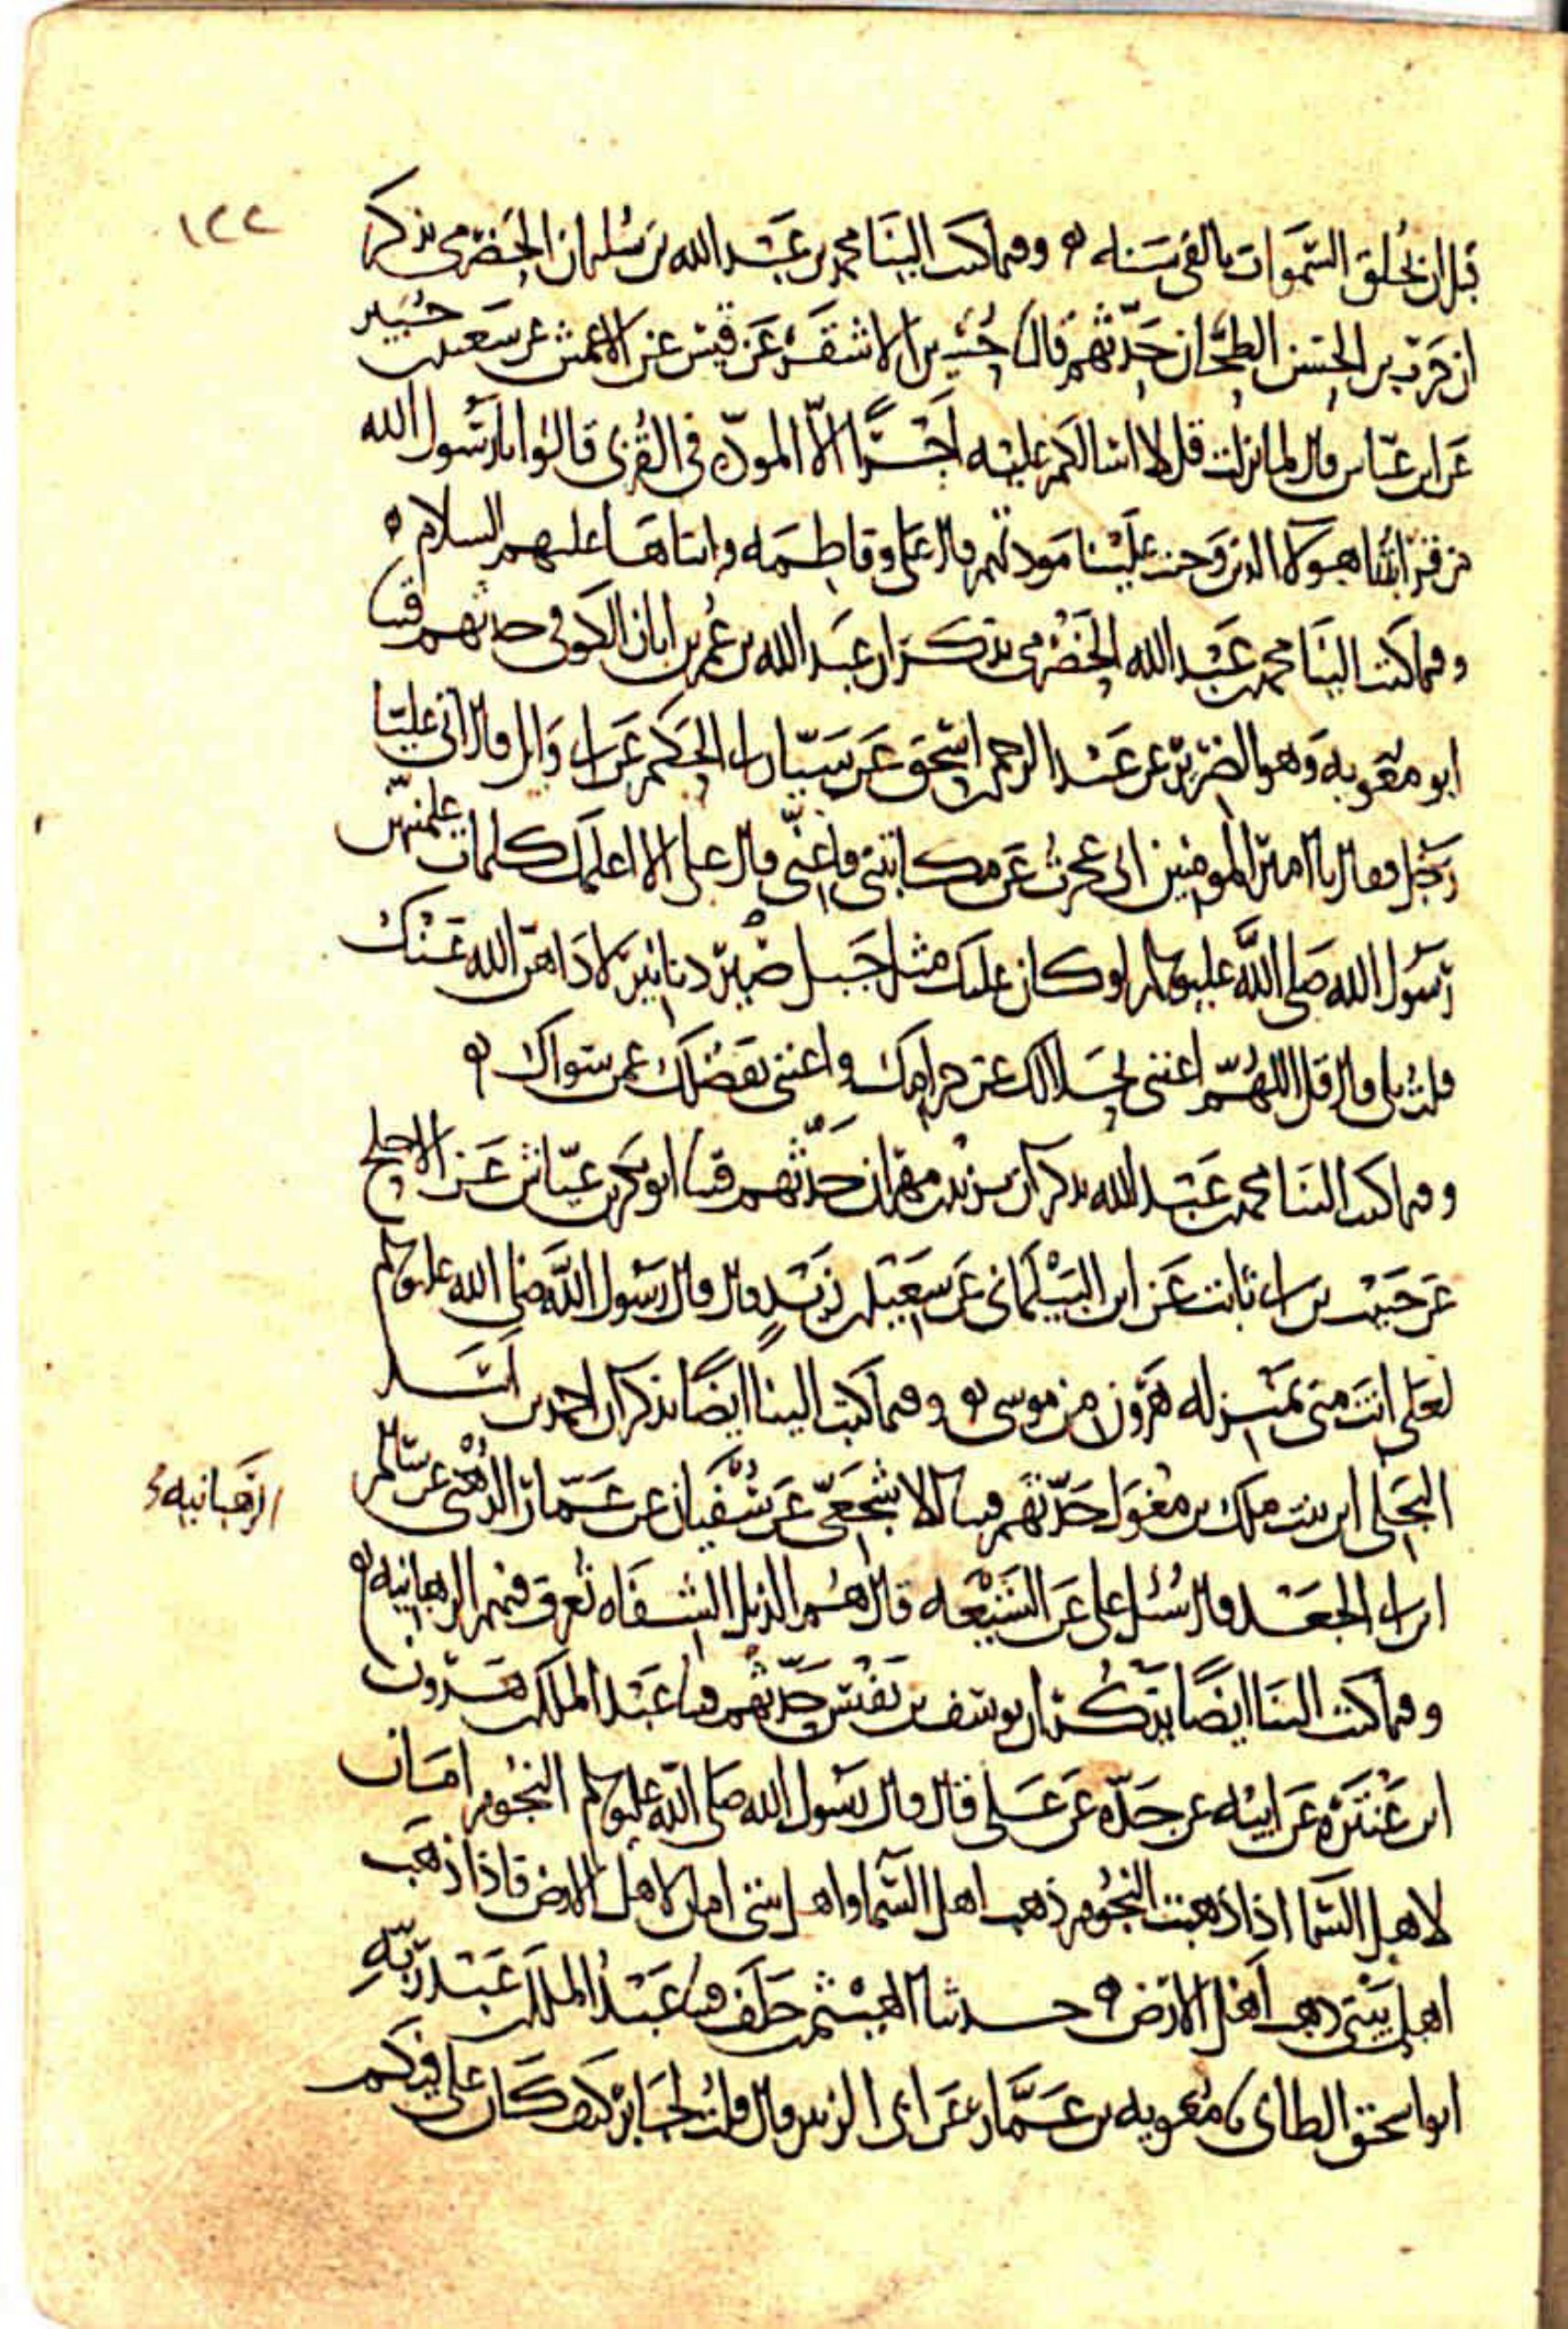 ١٢٢
قبل ان تخلق السموات بالفى سنه ه وفيما كتب الينا محمد بن عبد الله بن سليمان الحضرمى يذكر
ان حرب بن الحسن الطحان حدثهم قال نا حسين الاشقر عن قيس عن الاعمش عن سعيد بن جبير
عن ابن عباس قال لما نزلت قل لا اسالكم عليه اجرا الا المودة فى القربى قالوا يا رسول الله
من قرابتنا هؤلا الذين وجبت علينا مودتهم قال على وفاطمه وابناها عليهم السلام ه
وفيما كتب الينا محمد بن عبد الله الحضرمى يذكر ان عبد الله بن عمر بن ابان الكوفى حدثهم قثنا
ابو معويه وهو الضرير عن عبد الرحمن بن اسحق عن سيار ابى الحكم عن ابى وايل قال اتى عليا
رجل فقال يا امير المومنين انى عجزت عن مكاتبتى فاعنى قال على الا اعلمك كلمات علمنيهن
رسول الله صلى الله عليه وسلم لو كان عليك مثل جبل صبير دنانير لاداهن الله عنك
قلت بلى قال قل اللهم اغننى بحلالك عن حرامك واغننى بفضلك عمن سواك ه
وفيما كتب الينا محمد بن عبد الله يذكر ان يزيد بن مهران حدثهم قثنا ابو بكر بن عياش عن الاجلح
عن حبيب بن ابى ثابت عن ابن البيلمانى عن سعيد بن زيد قال قال رسول الله صلى الله عليه وسلم
لعلى انت منى بمنزله هرون من موسى ه وفيما كتب الينا ايضا يذكر ان احمد بن اسد
البجلى ابن بنت ملك بن مغول حدثهم قثنا الاشجعى عن سفيان عن عمار الدهنى عن سالم
الرهبانيه
ابن ابى الجعد قال سئل على عن الشيعه قال هم الذبل الشفاه تعرف فيهم الرهبانيه ه
وفيما كتب الينا ايضا يذكر ان يوسف بن نفيس حدثهم قثنا عبد الملك بن هرون
ابن عنتره عن ابيه عن جده عن على قال قال رسول الله صلى الله عليه وسلم النجوم امان
لاهل السما اذا ذهبت النجوم ذهب اهل السما واهل بيتى امان لاهل الارض فاذا ذهب
اهل بيتى ذهب اهل الارض ه حدثنا الهيثم بن خلف قثنا عبد الملك بن عبد ربه
ابو اسحق الطاى نا معويه بن عمار عن ابى الزبير قال قلت لجابر كيف كان على فيكم